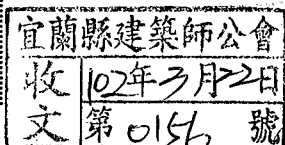 宜蘭縣建築師公會
收文
102年3月22日
第0156號